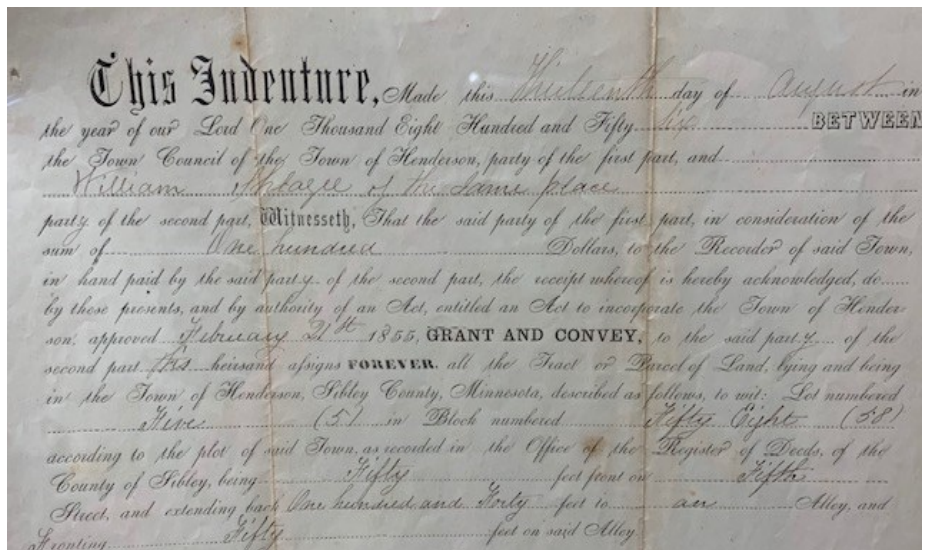 This Indenture, Made this Thirteenth day of August in
the year of our Lord One Thousand Eight Hundred and Fifty six BETWEEN
the Town Council of the Town of Henderson, party of the first part, and
William of the same place
party of the second part, Witnesseth, That the said party of the first part, in consideration of the
sum of One hundred Dollars, to the Recorder of said Town,
in hand paid by the said party of the second part, the receipt whereof is hereby acknowledged, do
by these presents, and by authority of an Act, entitled an Act to incorporate the Town of Hender
son, approved February 21st 1855, GRANT AND CONVEY, to the said party of the
second part his heirs and assigns FOREVER, all the Tract or Parcel of Land, lying and being
in the Town of Henderson, Sibley County, Minnesota, described as follows, to wit: Lot numbered
Five (5) in Block numbered Fifty Eight (58)
according to the plot of said Town, as recorded in the Office of the Register of Deeds, of the
County of Sibley, being Fifty feet front on Fifth
Street, and extending back One hundred and Forty feet to an Alley, and
Fronting Fifty feet on said Alley.